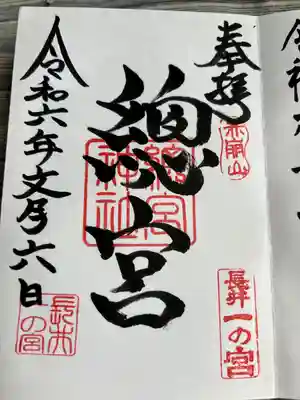 奉拝
赤崩山
總宮
總宮
神社
長井
一の宮
令和六年文月六日
長井
一の宮